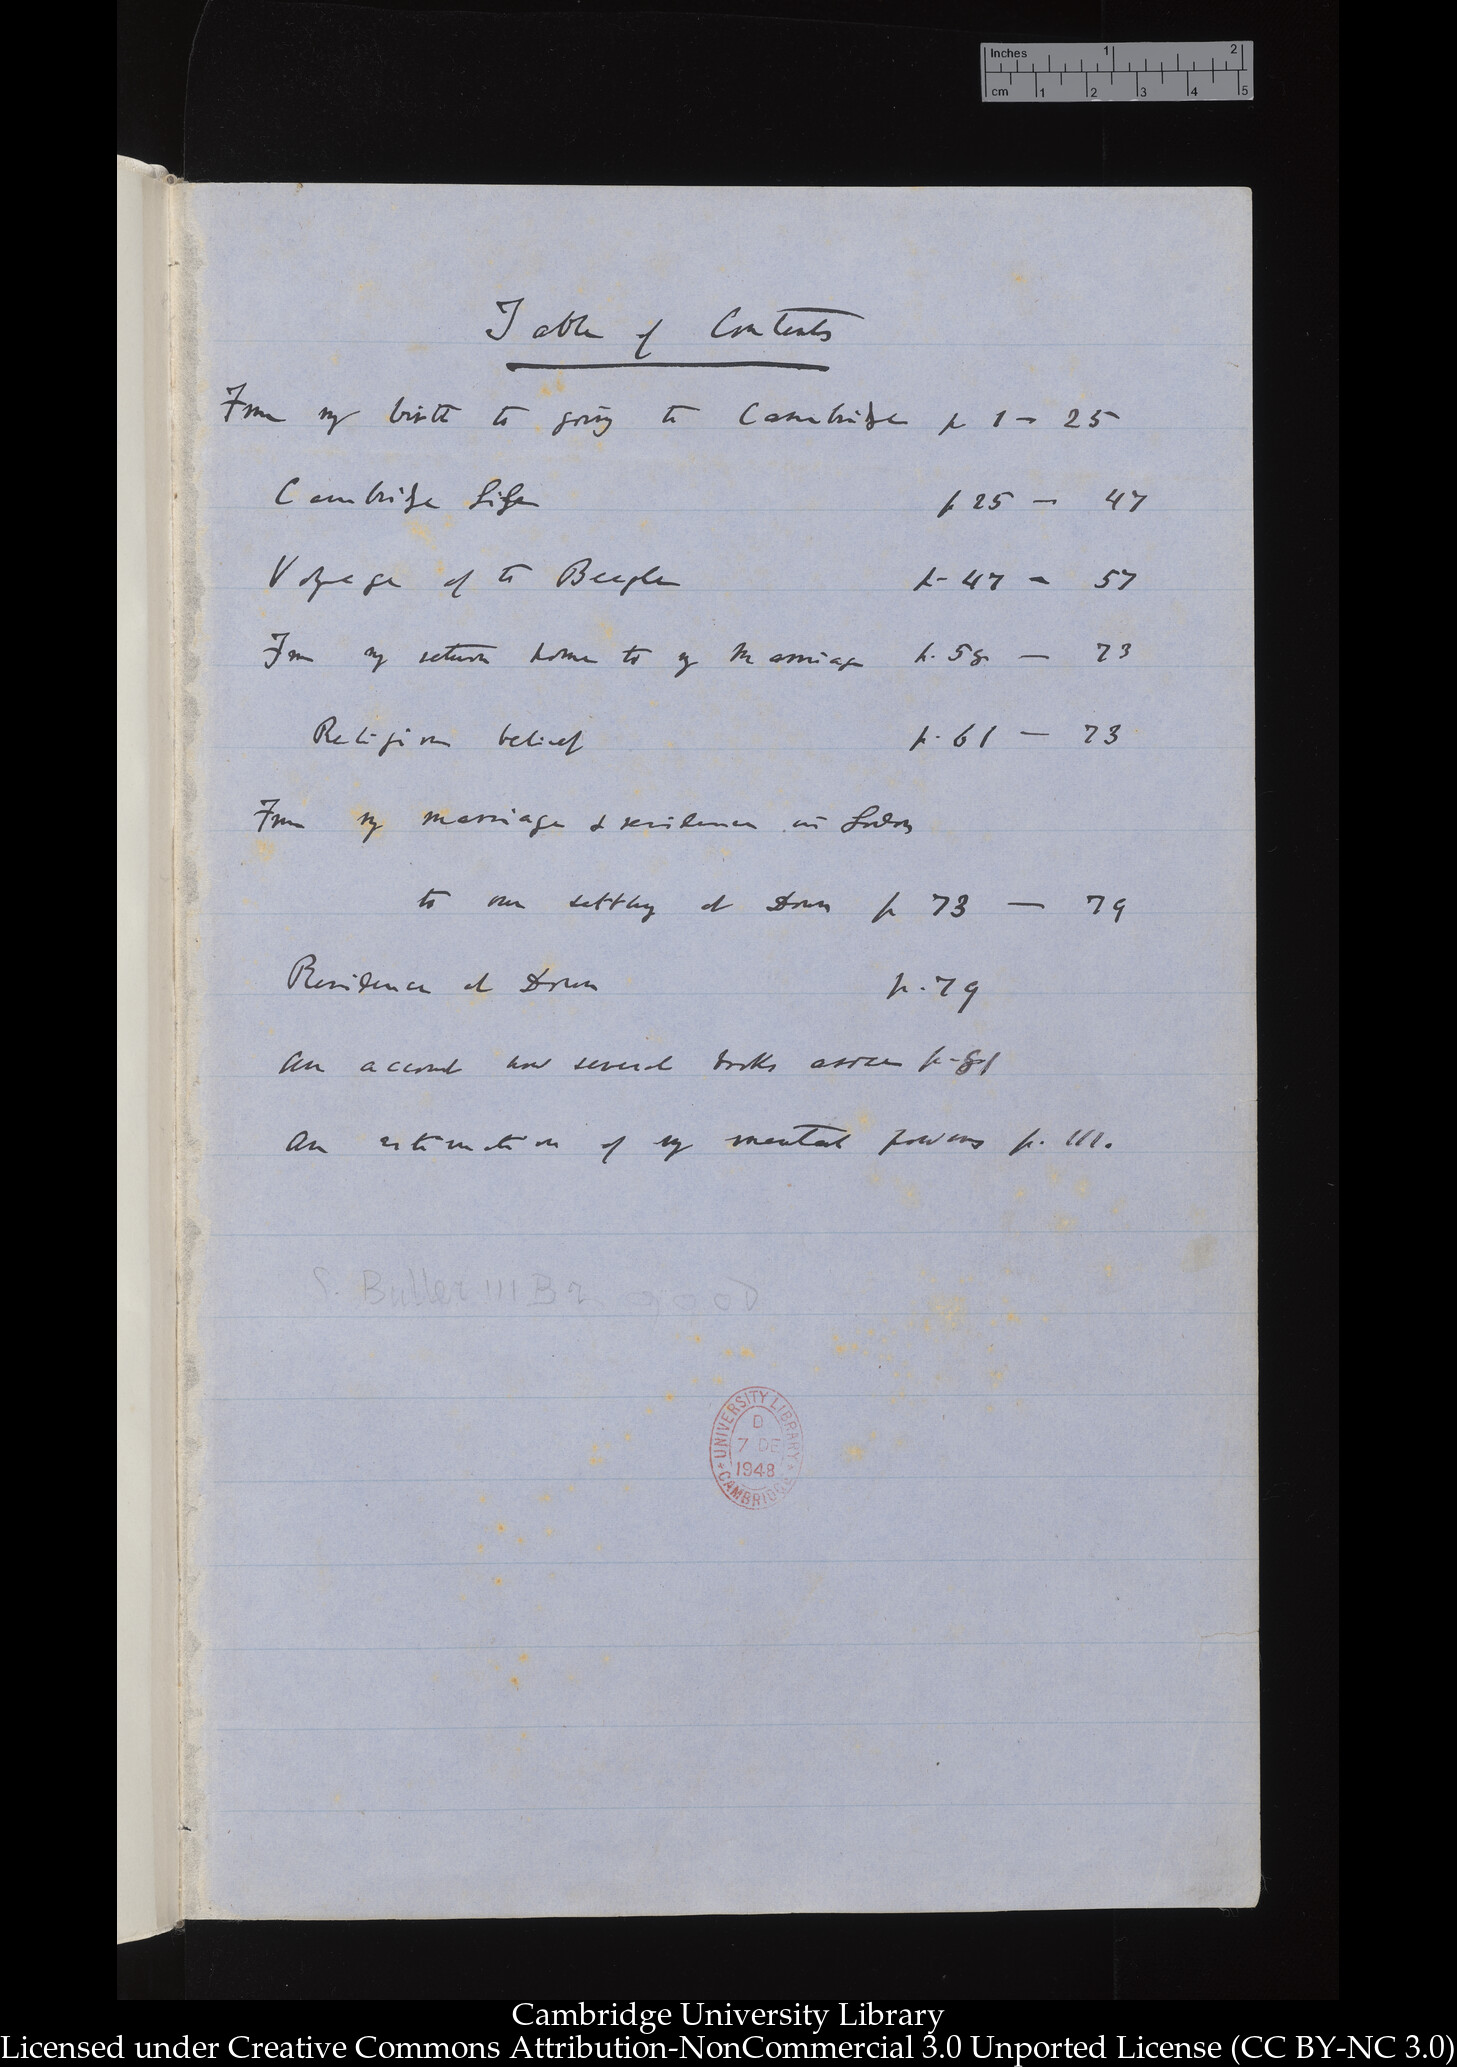 Inches 1 2
cm 1 2 3 4 5
Table of Contents
From my birth to going to Cambridge p 1 — 25
Cambridge Life p 25 — 47
Voyage of the Beagle p. 47 — 57
From my return home to my marriage p. 58 — 73
Religious belief p. 61 — 73
From my marriage & residence in London
to our settling at Down p 73 — 79
Residence at Down p. 79
An account how several books arose p. 81
An estimation of my mental powers p. 111.
S. Butler III B
UNIVERSITY LIBRARY
D
7 DE
1948
CAMBRIDGE
Cambridge University Library
Licensed under Creative Commons Attribution-NonCommercial 3.0 Unported License (CC BY-NC 3.0)